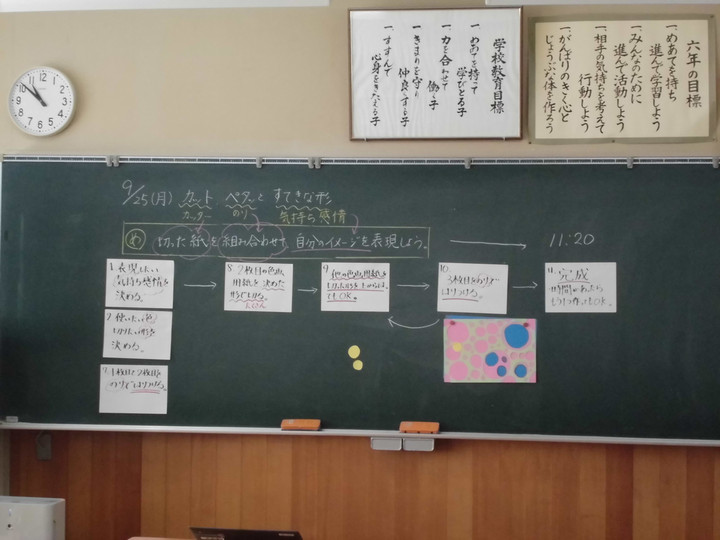 学校教育目標
一、めあてを持って
学びとる子
一、力を合わせて
働く子
一、きまりを守り
仲良くする子
一、すすんで
心身をきたえる子
六年の目標
一、めあてを持ち
進んで学習しよう
一、みんなのために
進んで活動しよう
一、相手の気持ちを考えて
行動しよう
一、がんばりのきく心と
じょうぶな体を作ろう
9/25(月) カット ペタッと すてきな形
カッター のり 気持ち感情
め 切った紙を組み合わせて 自分のイメージを表現しよう。
11:20
1. 表現したい
気持ち感情を
決める。
2. 使いたい色
切りたい形を
決める。
のりではりつける。
8. 2枚目の色画
用紙を決めた
形で切る。
9. 他の色画用紙を
切ったりを
してもOK。
10.
3枚目をのりで
はりつける。
11. 完成
時間があったら
もう1つ作ってもOK。